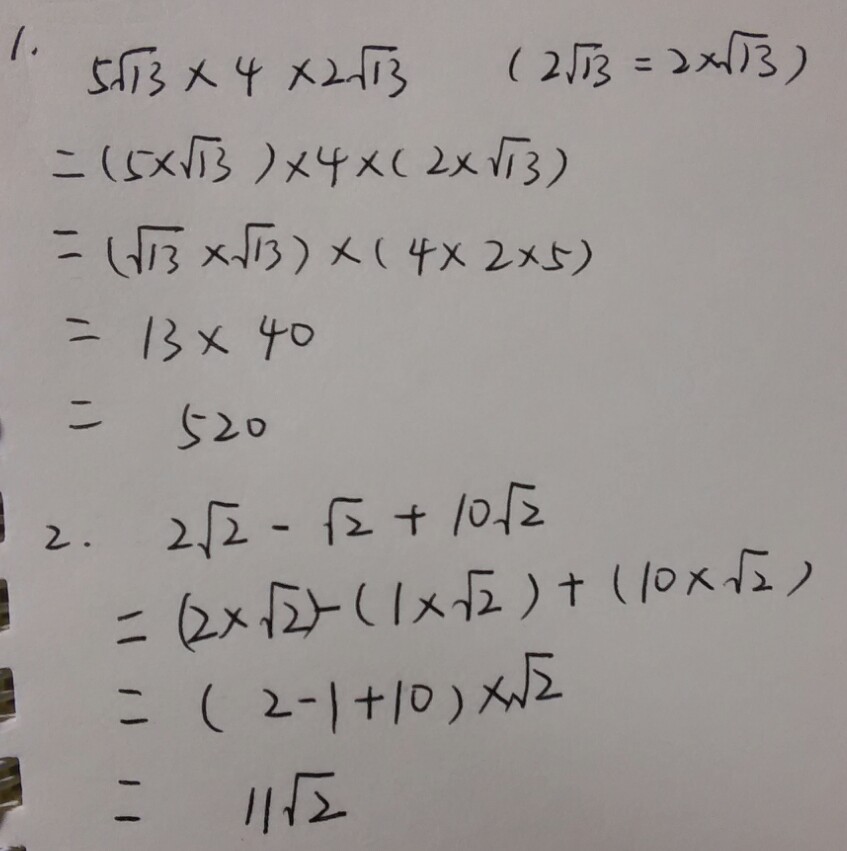 1. 5√13 × 4 × 2√13 (2√13 = 2×√13)
= (5×√13) × 4 × (2×√13)
= (√13 × √13) × (4 × 2 × 5)
= 13 × 40
= 520
2. 2√2 - √2 + 10√2
= (2×√2) - (1×√2) + (10×√2)
= (2-1+10) × √2
= 11√2